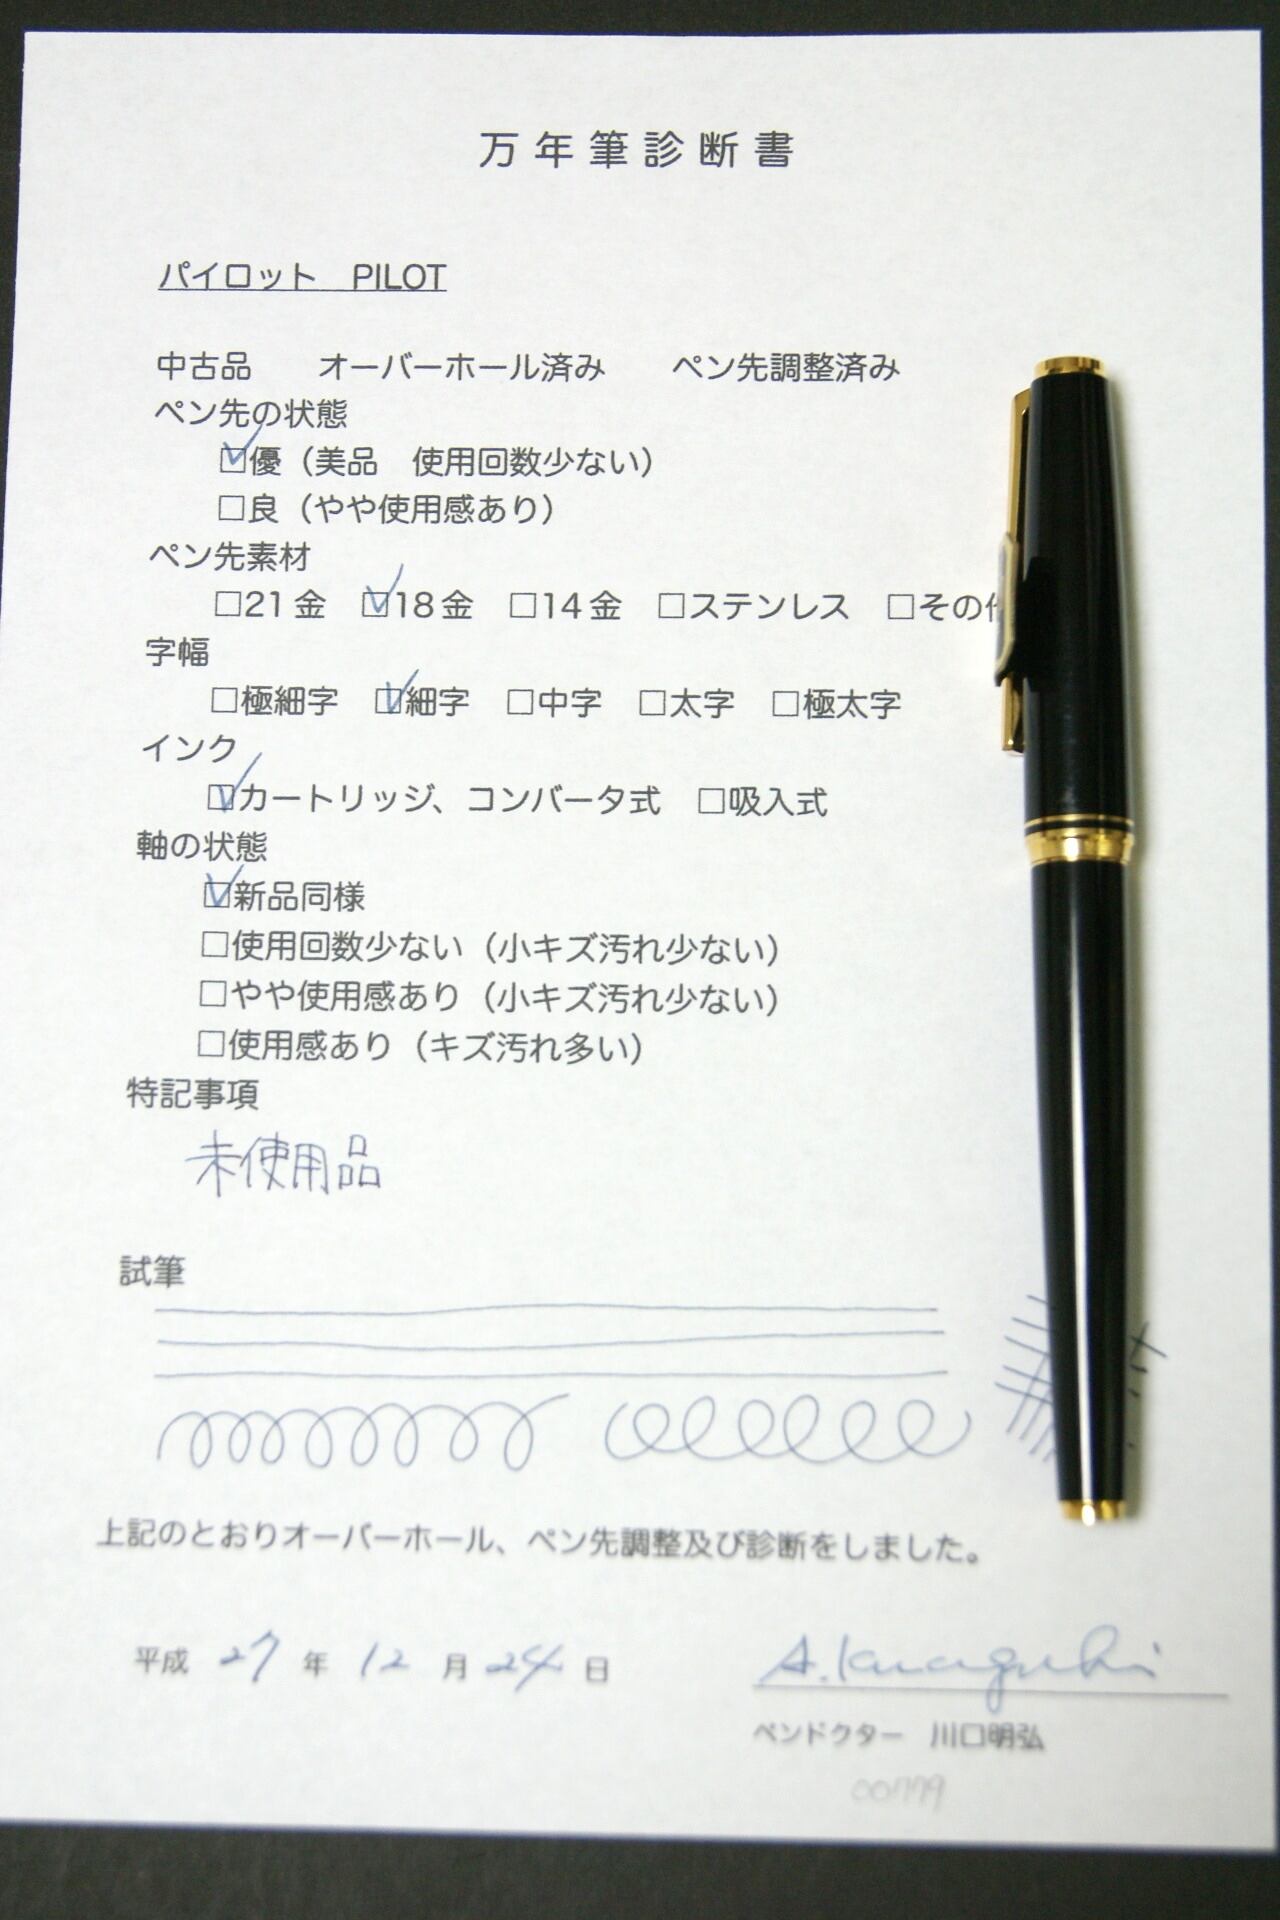 万年筆診断書
パイロット　PILOT
中古品　　オーバーホール済み　　ペン先調整済み
ペン先の状態
☑優（美品　使用回数少ない）
□良（やや使用感あり）
ペン先素材
□21金　☑18金　□14金　□ステンレス　□その
字幅
□極細字　☑細字　□中字　□太字　□極太字
インク
☑カートリッジ、コンバータ式　□吸入式
軸の状態
☑新品同様
□使用回数少ない（小キズ汚れ少ない）
□やや使用感あり（小キズ汚れ少ない）
□使用感あり（キズ汚れ多い）
特記事項
未使用品
試筆
上記のとおりオーバーホール、ペン先調整及び診断をしました。
平成 27 年 12 月 24 日
A. Kawaguchi
ペンドクター　川口明弘
00779